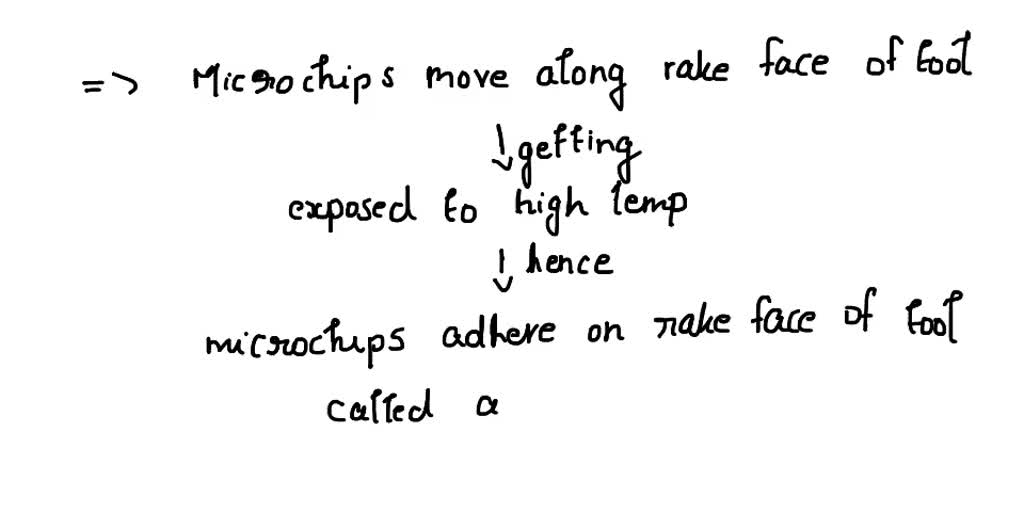 => Microchips move along rake face of tool
↓ getting
exposed to high temp
↓ hence
microchips adhere on rake face of tool
called a